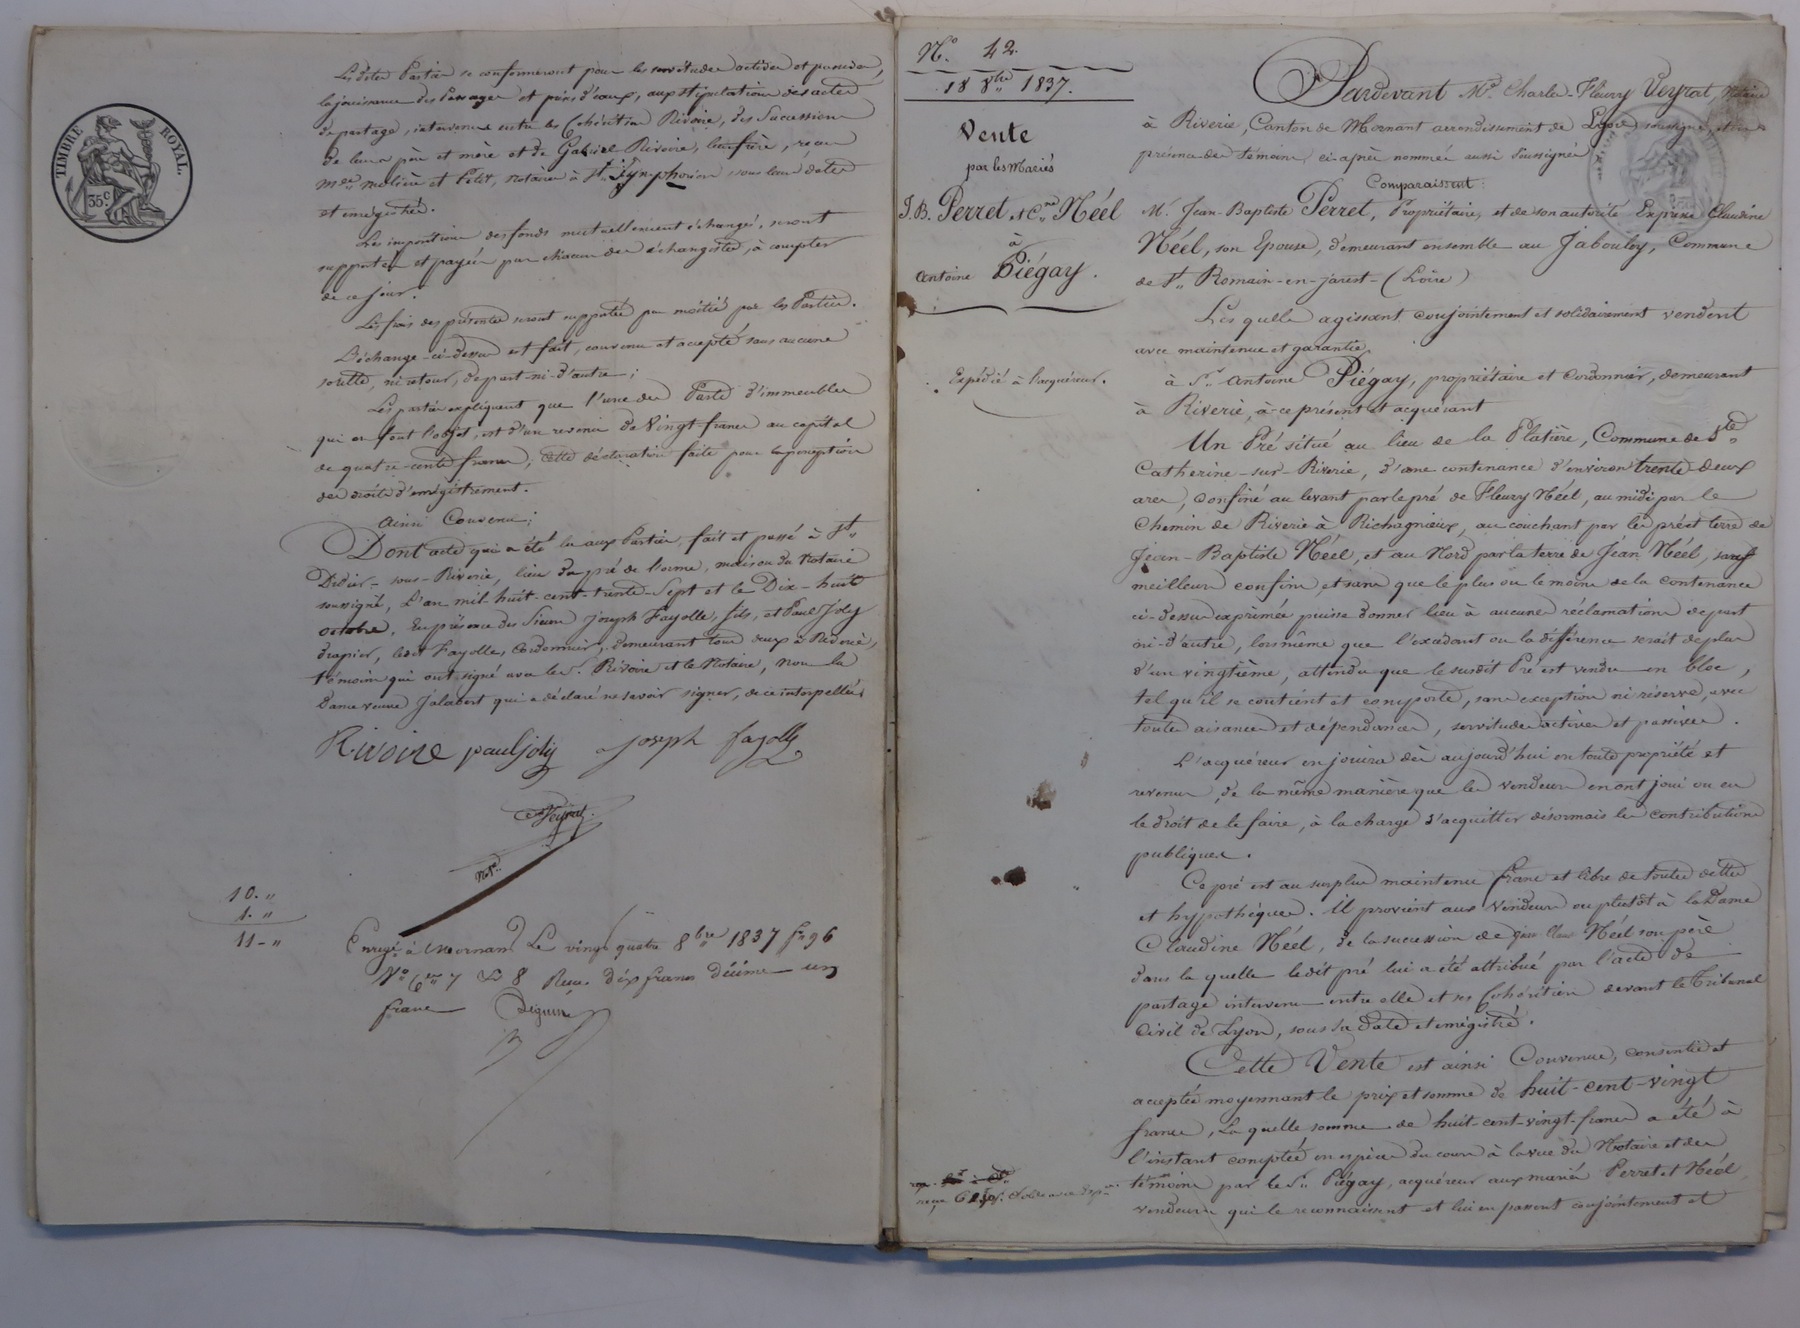 TIMBRE ROYAL
35 c
Lesdites Parties se conformeront pour les servitudes actives et passives,
la jouissance des Passages et prises d'eaux, aux stipulations des actes
de partage, intervenus entre les Cohéritiers Rivoire, des Successions
de leurs père et mère et de Gabriel Rivoire, leur frère, reçu
Mes Molière et Pelet, Notaires à St. Symphorien sous leurs dates
et enregistrés.
Les impositions des fonds mutuellement échangés, seront
supportées et payées par chacun des échangistes, à compter
de ce jour.
Les frais des présentes seront supportés par moitié par les Parties.
L'échange ci-dessus est fait, convenu et accepté sans aucune
soulte, ni retour, de part ni d'autre;
Les parties expliquent que l'une des Parts d'immeubles
qui en font l'objet, est d'un revenu de Vingt francs au capital
de quatre-cents francs, cette déclaration faite pour la perception
des droits d'enregistrement.
Ainsi Convenu;
Dont acte qui a été lu aux Parties, fait et passé à St.
Didier-sous-Riverie, lieu du pré de l'orme, maison du Notaire
soussigné, L'an mil-huit-cent-trente-Sept et le Dix-huit
octobre, En présence des Sieurs Joseph Fayolle, fils, et Paul Joly
drapier, ledit Fayolle, Cordonnier, demeurant tous deux à Riverie,
témoins qui ont signé avec led. Rivoire et le Notaire, non la
Dame veuve Jalabert qui a déclaré ne savoir signer, de ce interpellée.
Rivoire paul joly joseph fayolle
Veyrat
Nre.
10. "
1. "
11 - "
Enregé à Mornant Le vingt quatre 8bre 1837 fo 96
Vo Ces 7 & 8 Reçu dix francs décime un
franc
No. 42.
18 8bre 1837.
Vente
par les Mariés
J. B. Perret et Cne Néel
à
Antoine Piégay.
Expédié à l'acquéreur.
Pardevant Me. Charles-Fleury Veyrat, Notaire
à Riverie, Canton de Mornant arrondissement de Lyon, soussigné, et en
présence des témoins, ci-après nommés aussi Soussignés
Comparaissent:
Mr. Jean-Baptiste Perret, Propriétaire, et de son autorité Expresse Claudine
Néel, son Epouse, demeurant ensemble au Jabouley, Commune
de St. Romain-en-jarest-(Loire)
Lesquels agissant conjointement et solidairement vendent
avec maintenue et garantie,
à Sr. Antoine Piégay, propriétaire et Cordonnier, demeurant
à Riverie, à ce présent et acquérant
Un Pré situé au lieu de la Platière, Commune de Ste
Catherine-sur-Riverie, d'une contenance d'environ trente-deux
ares, confiné au levant par le pré de Fleury Néel, au midi par le
Chemin de Riverie à Richagnieux, au couchant par les pré et terre de
Jean-Baptiste Néel, et au Nord par la terre de Jean Néel, sauf
meilleurs confins et sans que le plus ou le moins de la contenance
ci-dessus exprimée puisse donner lieu à aucune réclamation de part
ni-d'autre, lors même que l'excédant ou la différence serait de plus
d'un vingtième, attendu que le susdit Pré est vendu en bloc,
tel qu'il se contient et comporte, sans exception ni réserve, avec
toutes aisances et dépendances, servitudes actives et passives.
L'acquéreur en jouira dès aujourd'hui en toute propriété et
revenus, de la même manière que les Vendeurs en ont joui ou eu
le droit de le faire, à la charge d'acquitter désormais les contributions
publiques.
Ce pré est au surplus maintenu franc et libre de toutes dettes
et hypothèques. Il provient aux Vendeurs ou plutôt à la Dame
Claudine Néel, de la succession de Néel son père
dans laquelle ledit pré lui a été attribué par l'acte de
partage intervenu entre elle et ses Cohéritiers devant le Tribunal
Civil de Lyon, sous sa date et enregistré.
Cette Vente est ainsi Convenue, consentie et
acceptée moyennant le prix et somme de huit-cent-vingt
francs, Laquelle somme de huit-cent-vingt-francs a été à
l'instant comptée en espèces du cours à la vue du Notaire et des
témoins par le Sr. Piégay, acquéreur aux mariés Perret et Néel,
vendeurs qui le reconnaissent et lui en passent conjointement et